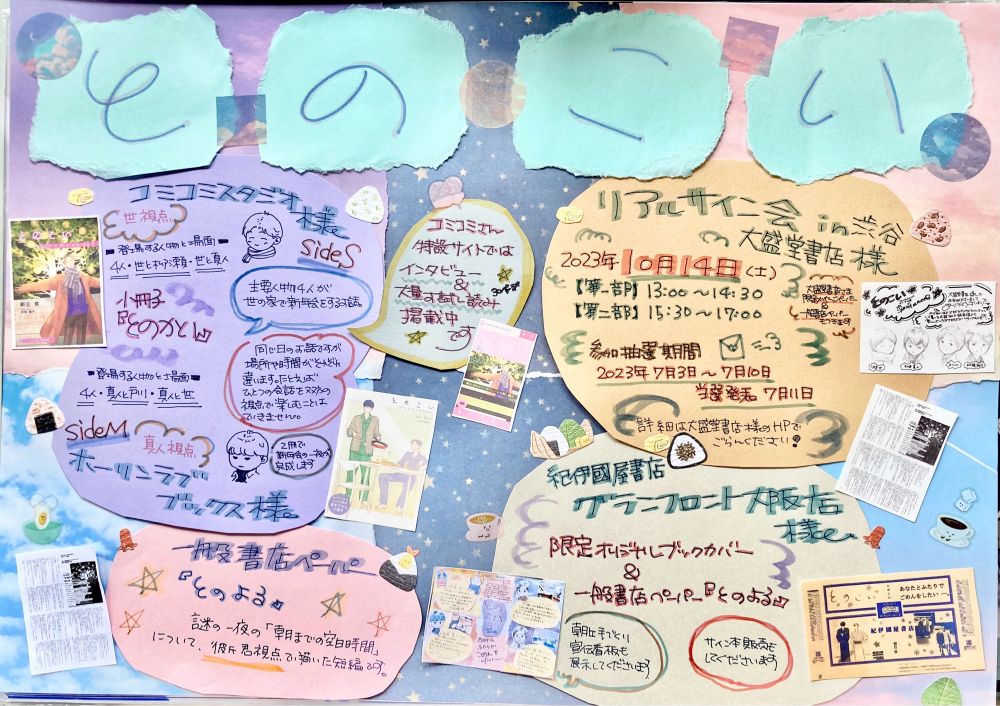 とのこい
コミコミスタジオ様
世視点
sideS
登場する人物と場面
4人・世と柳瀬・世と真人
主要人物4人が
世の家で新年会をする話
小冊子
『とのかど』
同じ日のお話ですが
場所や時間がそれぞれ
違います。たとえば
ひとつの会話を双方の
視点で楽しむことは
できません。
登場する人物と場面
4人・真人と戸川・真人と世
sideM
真人視点
2冊で
新年会の一夜が
完成します
ホーリンラブ
ブックス様
コミコミさん
特設サイトでは
インタビュー
&
大量お試し読み
掲載中
です
リアルサイン会 in 渋谷
大盛堂書店様
2023年 10月14日(土)
【第一部】13:00〜14:30
【第二部】15:30〜17:00
大盛堂書店では
限定ペーパー
&
一般書店ペーパー
もつきます
参加抽選期間
2023年7月3日〜7月10日
当選発表 7月11日
詳細は大盛堂書店様のHPで
ごらんください!
紀伊國屋書店
グランフロント大阪店
様
限定オリジナルブックカバー
&
一般書店ペーパー『とのよる』
朝丘手づくり
宣伝看板も
展示してくださいます
サイン本販売も
してくださいます
一般書店ペーパー
『とのよる』
謎の一夜の「朝までの空白時間」
について、彼氏君視点で描いた短編です。
とのこい
とのこい
あなたとふたりで
ごめんをしたい―。
紀伊國屋書店